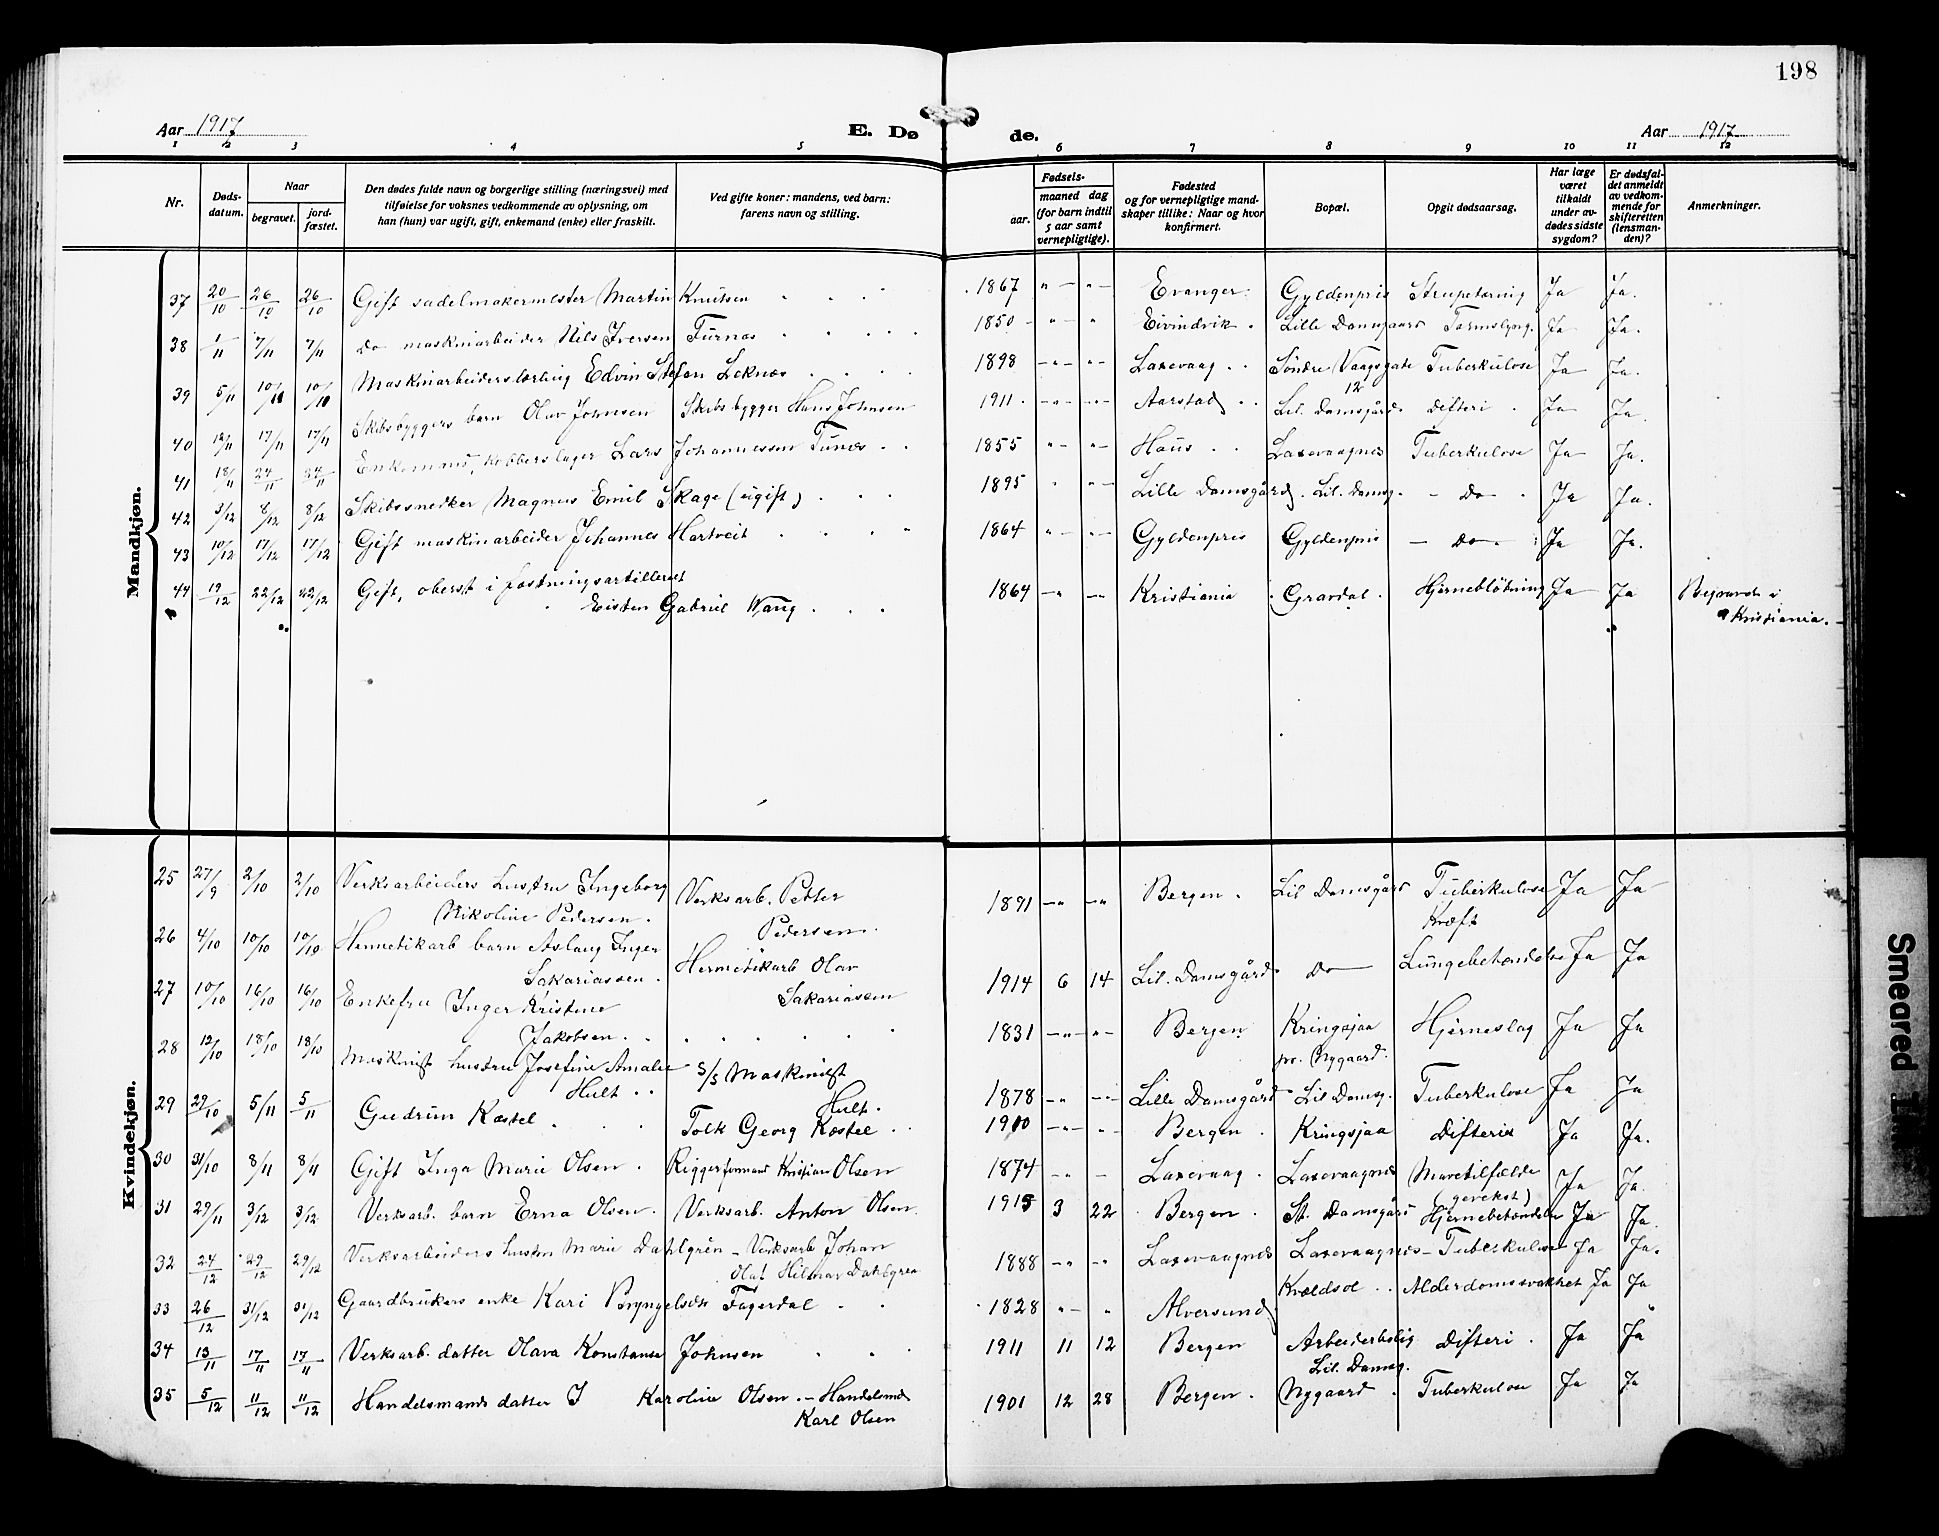 198
Aar 1917
E. Dø de.
Aar 1917
1 2 3 4 5 6 7 8 9 10 11 12
Nr.
Døds-datum.
Naar
begravet.
jord-fæstet.
Den dødes fulde navn og borgerlige stilling (næringsvei) med tilføielse for voksnes vedkommende av oplysning, om han (hun) var ugift, gift, enkemand (enke) eller fraskilt.
Ved gifte koner: mandens, ved barn: farens navn og stilling.
Fødsels-
aar.
maaned dag
(for barn indtil 5 aar samt vernepligtige).
Fødested og for vernepligtige mand-skaper tillike: Naar og hvor konfirmert.
Bopæl.
Opgit dødsaarsag.
Har læge været tilkaldt under av-dødes sidste sygdom?
Er dødsfal-det anmeldt av vedkom-mende for skifteretten (lensman-den)?
Anmerkninger.
Mandkjøn.
37 20/10 26/10 26/10 Gift sadelmakermester Martin Knutsen 1867 Evanger Gyldenpris Ja Ja.
38 1/11 7/11 7/11 Do maskinarbeider Nils Iversen Turnes 1850 Eivindvik Lille Damsgaard Ja Ja.
39 5/11 10/11 10/10 Maskinarbeiderslærling Edvin Stefan Leknes 1898 Laxevaag Søndre Vaagsgate 12 Tuberkulose Ja Ja.
40 12/11 17/11 17/11 Skibsbyggers barn Olav Johnsen Skibsbygger Hans Johnsen 1911 Aarstad Lil. Damsgård Difteri Ja Ja.
41 18/11 24/11 24/11 Enkemand, kobberslager Lars Johannessen Tunes 1855 Haus Laxevaagnes Tuberkulose Ja Ja.
42 3/12 8/12 8/12 Skibssnedker Magnus Emil Skage (ugift) 1895 Lille Damsgård Lil. Damsg. Do Ja Ja.
43 10/12 17/12 17/12 Gift maskinarbeider Johannes Hartveit 1864 Gyldenpris Gyldenpris Do Ja Ja.
44 19/12 22/12 22/12 Gift, oberst i fæstningsartilleriet
Eisten Gabriel Wang 1864 Kristiania Gravdal Hjerneblødning Ja Ja Begravet i
Kristiania.
Kvindekjøn.
25 27/9 2/10 2/10 Verksarbeiders hustru Ingeborg
Nikoline Pedersen. Verksarb. Petter
Pedersen. 1891 Bergen Lil Damsgård Tuberkulose
Kræft Ja Ja
26 4/10 10/10 10/10 Hermetikarb barn Aslaug Inger
Sakariassen. Hermetikarb Olav
Sakariassen 1914 6 14 Lil. Damsgård Do Lungebetændelse Ja Ja
27 10/10 16/10 16/10 Enkefru Inger Kristine
Jakobsen 1831 Bergen Kringsjaa
pr. Nygaard. Hjerneslag Ja Ja
28 12/10 18/10 18/10 Maskinist hustru Josefine Amalie
Hult S/S Maskinist
Hult. 1878 Lille Damsgård Lil Damsg. Tuberkulose Ja Ja
29 29/10 5/11 5/11 Gudrun Kæstel Tolk Georg Kæstel 1910 Bergen Kringsjaa Difteri Ja Ja.
30 31/10 8/11 8/11 Gift Inga Marie Olsen Riggerformand Kristian Olsen 1874 Laxevaag Laxevaagnes Mavetilfælde
(gevekst) Ja Ja.
31 29/11 3/12 3/12 Verksarb. barn Erna Olsen Verksarb. Anton Olsen 1915 3 22 Bergen St. Damsgård Hjernebetændelse Ja Ja.
32 24/12 29/12 29/12 Verksarbeiders hustru Marie Dahlgrèn – Verksarb Johan
Olaf Hilmar Dahlgren 1888 Laxevaagnes Laxevaagnes Tuberkulose Ja Ja.
33 26/12 31/12 31/12 Gaardbrukers enke Kari Bryngelsdtr Fagerdal 1828 Alversund Kvældsol Alderdomssvakhet Ja Ja
34 13/11 17/11 17/11 Verksarb. datter Olava Konstanse Johnsen 1911 11 12 Bergen Arbeiderbolig
Lil. Damsg. Difteri Ja Ja
35 5/12 11/12 11/12 Handelsmands datter I Karoline Olsen – Handelsmd
Karl Olsen 1901 12 28 Bergen Nygaard Tuberkulose Ja Ja
Smeared